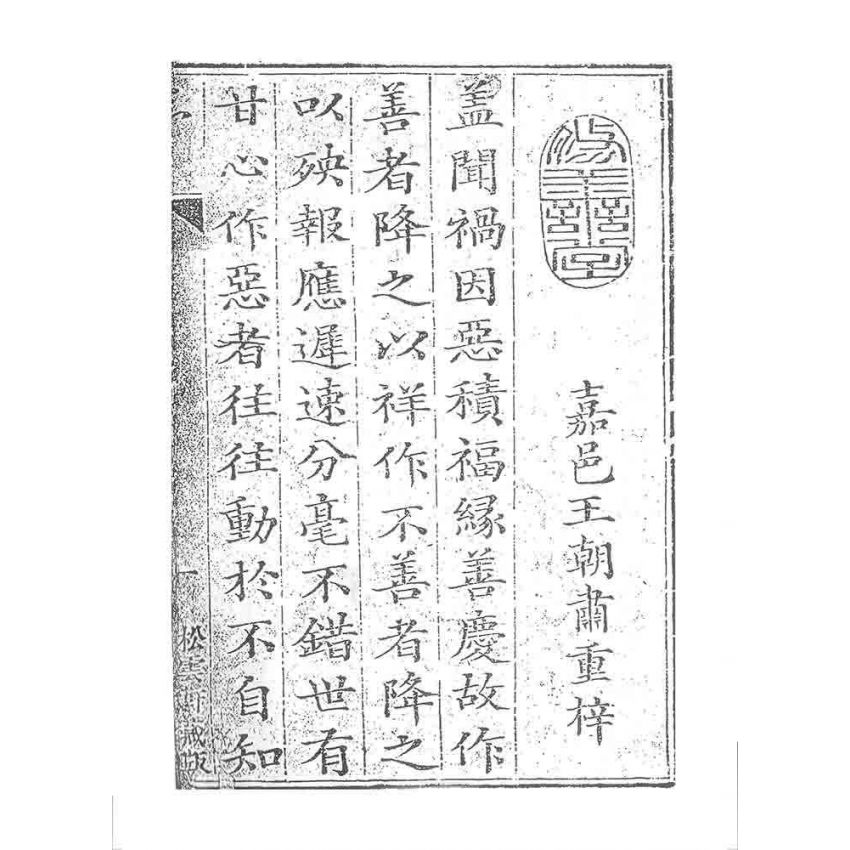 嘉邑王朝肅重梓
盖聞禍因惡積福緣善慶故作
善者降之以祥作不善者降之
以殃報應遲速分毫不錯世有
甘心作惡者往往動於不自知
一
松雲軒藏板